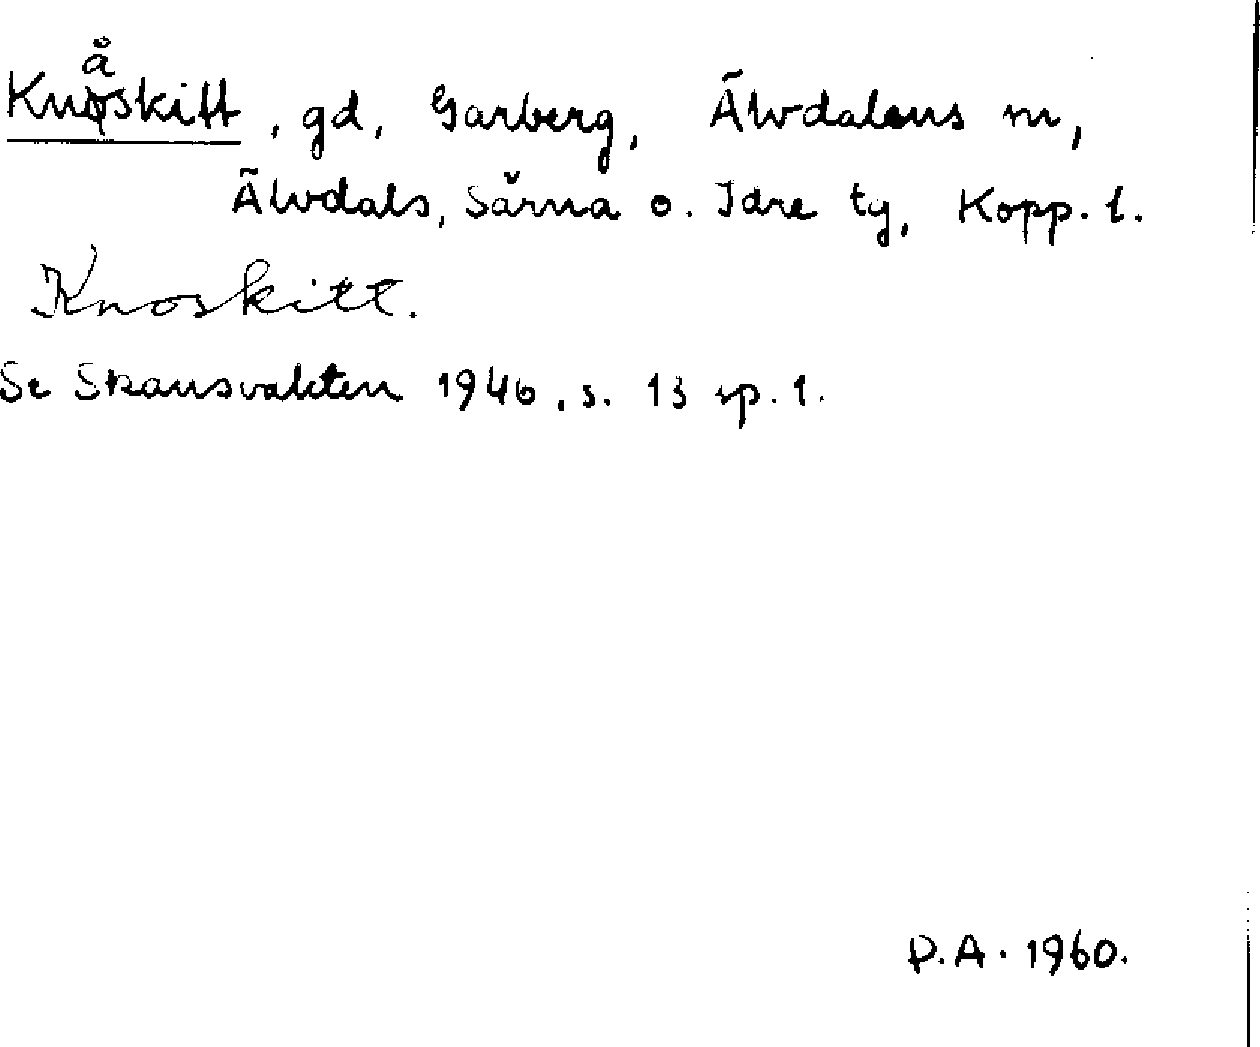 Knåskitt, gd, Garberg, Älvdalens m,
Älvdals, Särna o. Idre tg, Kopp. l.
Knoskitt.
Se Skansvakten 1946, s. 13 sp. 1.
D.A. 1960.